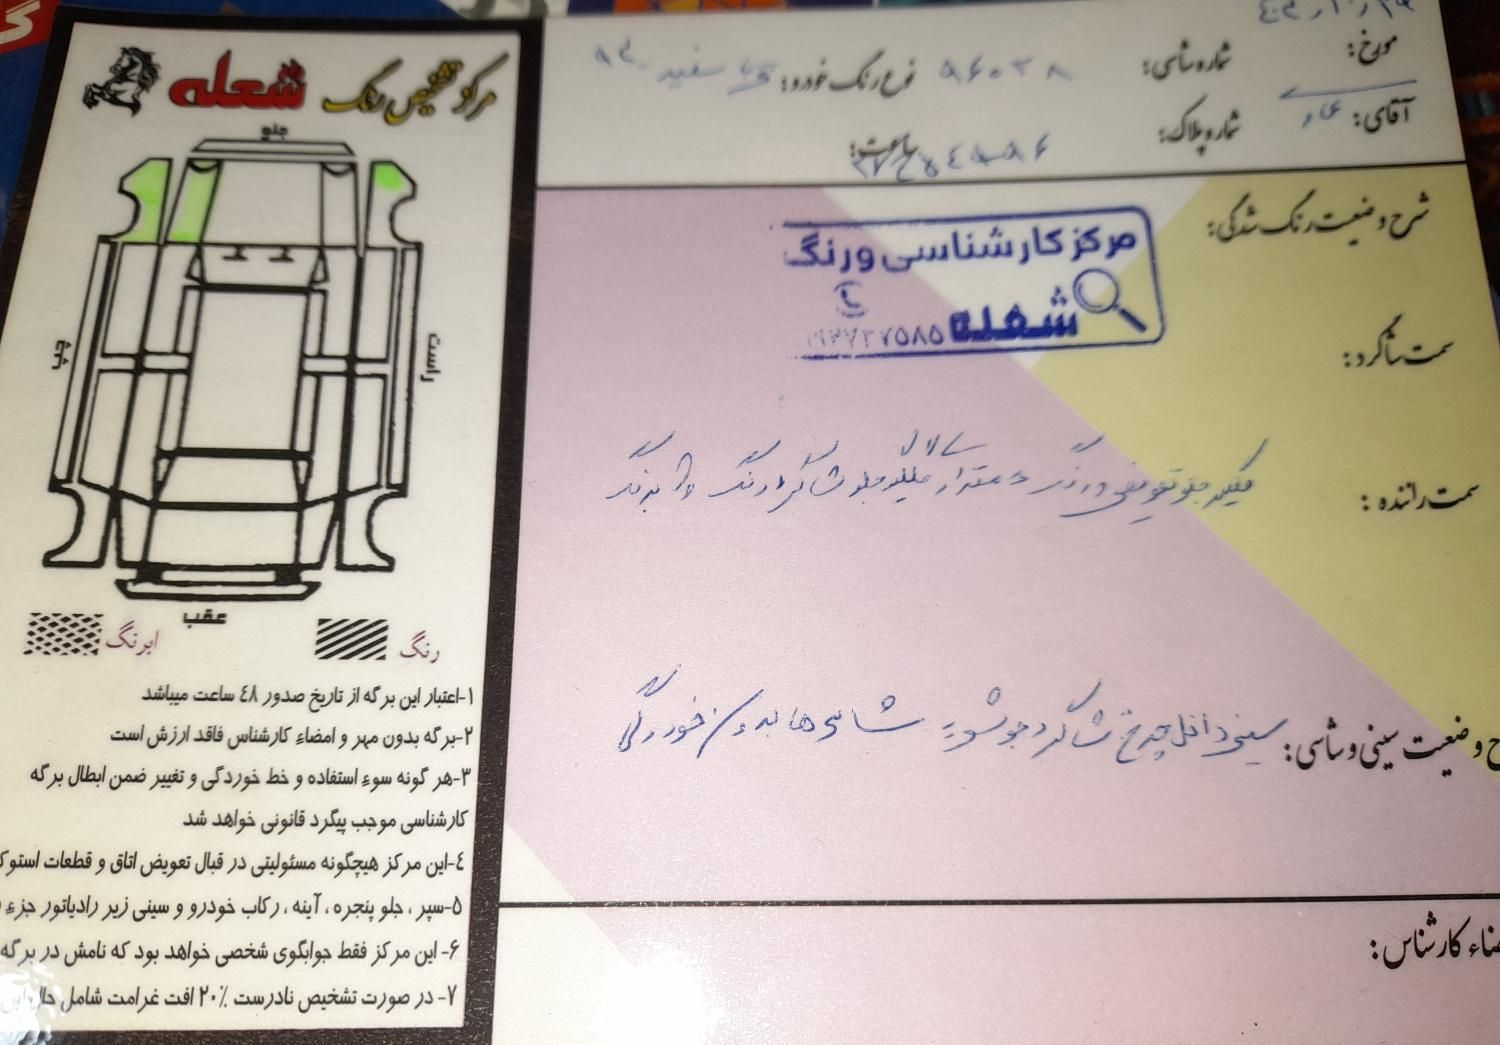 مرکز تشخیص رنگ شعله
جلو
چپ
راست
عقب
رنگ
ابرنگ
۱-اعتبار این برگه از تاریخ صدور ۴۸ ساعت میباشد
۲-برگه بدون مهر و امضاء کارشناس فاقد ارزش است
۳-هر گونه سوء استفاده و خط خوردگی و تغییر ضمن ابطال برگه
کارشناسی موجب پیگرد قانونی خواهد شد
۴-این مرکز هیچگونه مسئولیتی در قبال تعویض اتاق و قطعات استوک
۵-سپر ، جلو پنجره ، آینه ، رکاب خودرو و سینی زیر رادیاتور جزء
۶- این مرکز فقط جوابگوی شخصی خواهد بود که نامش در برگه
۷- در صورت تشخیص نادرست ۲۰٪ افت غرامت شامل حال این
مورخ:
شماره شاسی:
نوع رنگ خودرو: سفید
آقای:
شماره پلاک:
ساعت:
شرح وضعیت رنگ شدگی:
مرکز کارشناسی ورنگ
شعله
سمت شاگرد:
سمت راننده : گلگیر جلو تعویض و رنگ
ح وضعیت سینی و شاسی: سینی داخل چرخ شاگرد جوشی شاسی ها بدون خوردگی
ضاء کارشناس: